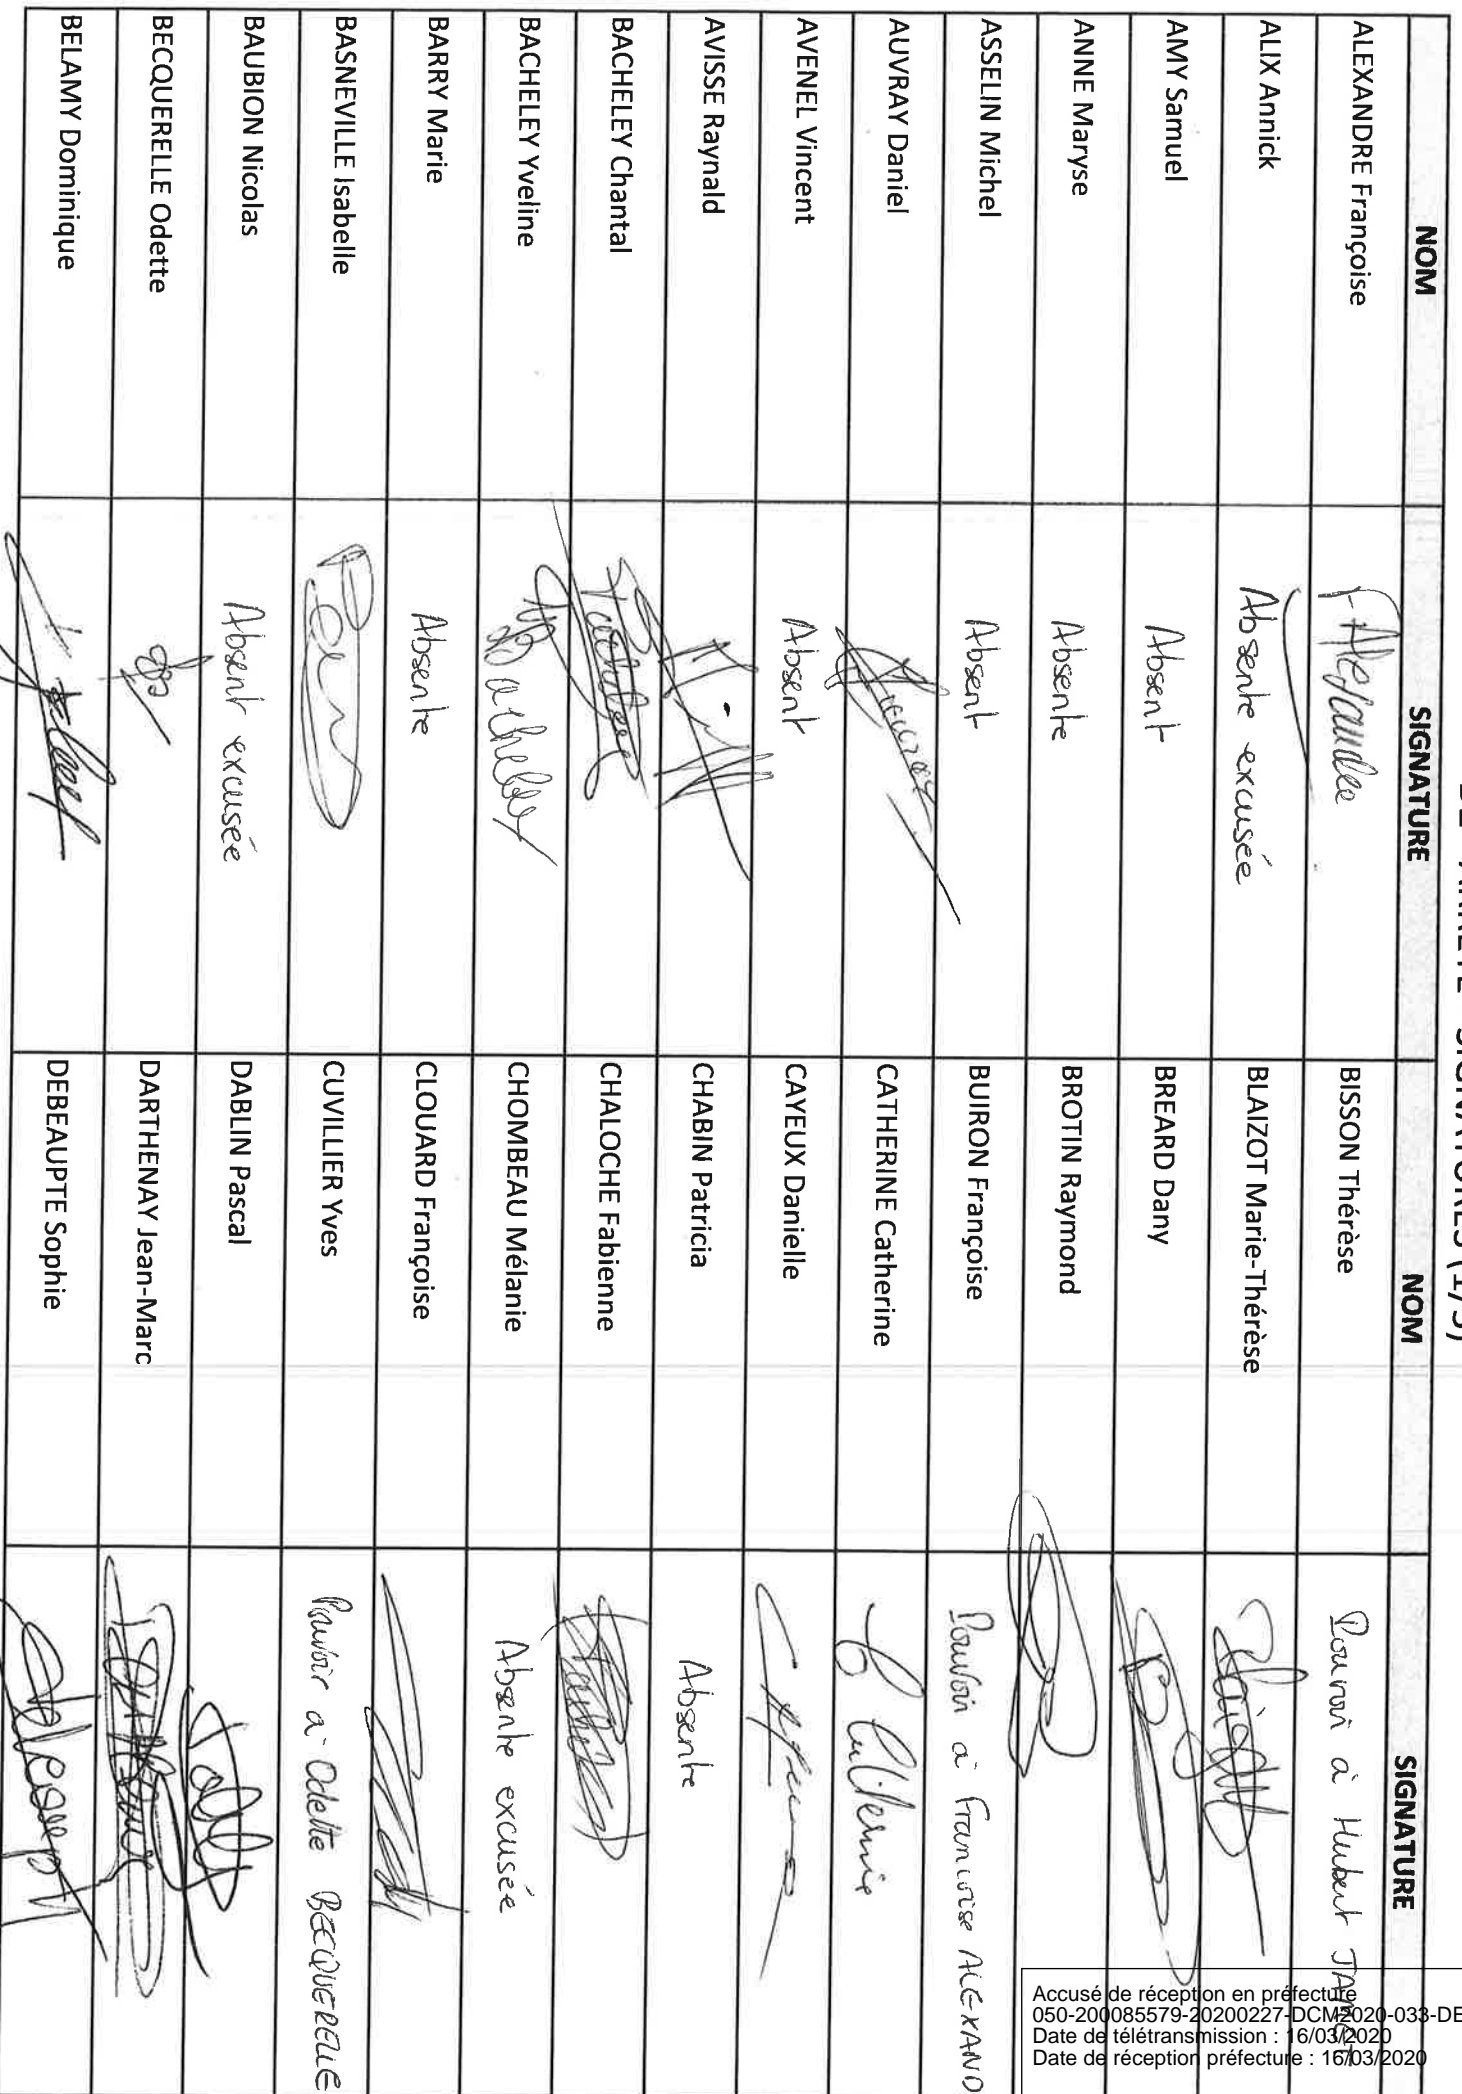 SIGNATURES (1/5)
NOM SIGNATURE NOM SIGNATURE
ALEXANDRE Françoise BISSON Thérèse Pouvoir à Hubert JAMET
ALIX Annick Absente excusée BLAIZOT Marie-Thérèse
AMY Samuel Absent BREARD Dany
ANNE Maryse Absente BROTIN Raymond
ASSELIN Michel Absent BUIRON Françoise Pouvoir à Françoise ALEXAND
AUVRAY Daniel CATHERINE Catherine
AVENEL Vincent Absent CAYEUX Danielle
AVISSE Raynald CHABIN Patricia Absente
BACHELEY Chantal CHALOCHE Fabienne
BACHELEY Yveline Bacheley CHOMBEAU Mélanie Absente excusée
BARRY Marie Absente CLOUARD Françoise
BASNEVILLE Isabelle CUVILLIER Yves Pouvoir à Odette BECQUERELLE
BAUBION Nicolas Absent excusée DABLIN Pascal
BECQUERELLE Odette DARTHENAY Jean-Marc
BELAMY Dominique DEBEAUPTE Sophie
Accusé de réception en préfecture
050-200085579-20200227-DCM2020-033-DE
Date de télétransmission : 16/03/2020
Date de réception préfecture : 16/03/2020